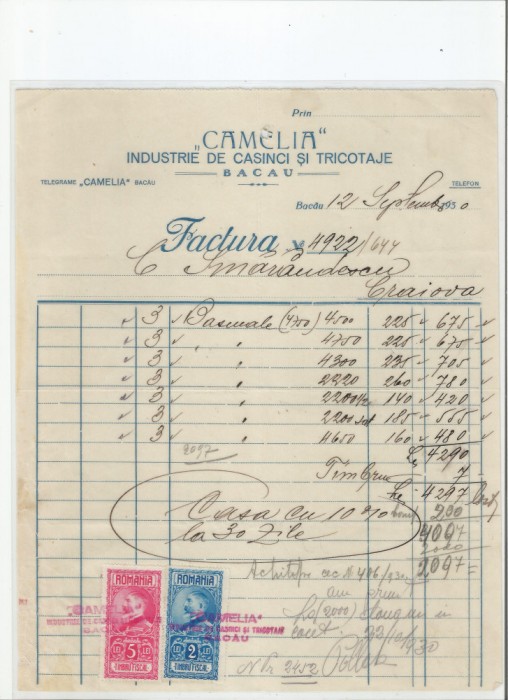 Prin
„CAMELIA“
INDUSTRIE DE CASINCI ȘI TRICOTAJE
BACAU
TELEGRAME „CAMELIA“ BACĂU
TELEFUN
Bacău 12 Septemb 1930
Factura № 4922/644
C Smărăndescu
Craiova
3 Basmale (4750) 4500 225 675
3 " " 4750 225 675
3 " 4300 235 705
3 " 2220 260 780
3 " 2200 140 420
3 " 2200 185 555
3 " 4650 160 480
2097
Lei 4290
Timbru 7
Lei 4297
200
Casa cu 10 %
la 30 Zile
4097
2000
2097 =
Achitat cec № 406
am primit
(2000)
cont
Nr. 2452
ROMANIA
5 LEI
TIMBRU FISCAL
ROMANIA
2 LEI
TIMBRU FISCAL
"CAMELIA"
INDUSTRIE DE CASINCI ȘI TRICOTAJE
BACĂU